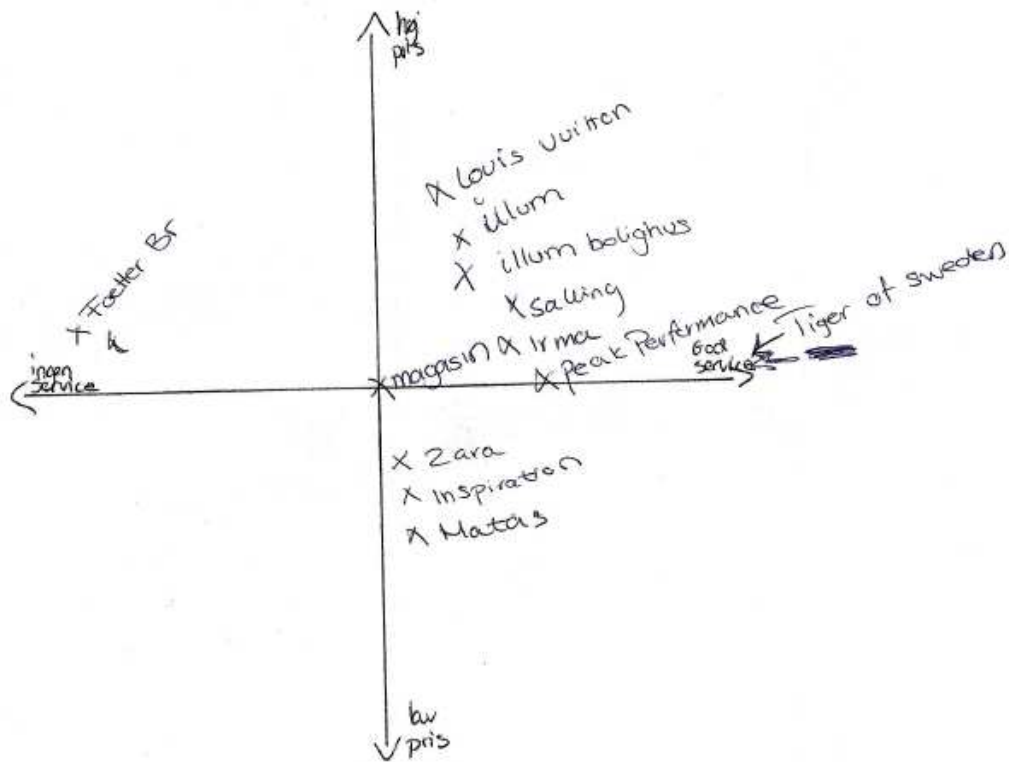 høj
pris
Louis Vuitton
illum
illum bolighus
Salling
Fætter Br
Irma
magasin
Peak Performance
Tiger of sweden
God
service
ingen
service
Zara
Inspiration
Matas
lav
pris